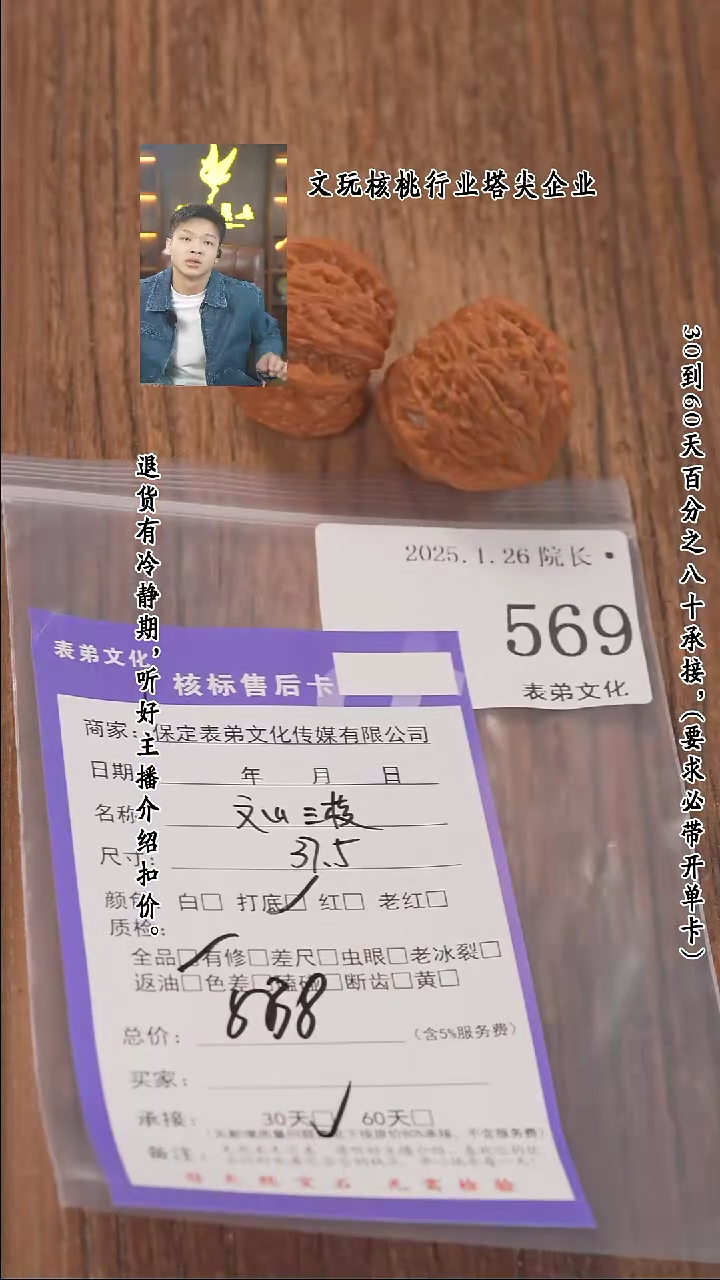 文玩核桃行业塔尖企业
30到60天百分之八十承接，（要求必带开单卡）
退货有冷静期，听好主播介绍扣价。
2025.1.26 院长·
569
表弟文化
表弟文化
核标售后卡
商家：保定表弟文化传媒有限公司
日期 年 月 日
名称 文山三棱
尺寸： 37.5
颜色 白□ 打底□ 红□ 老红□
质检：
全品□有修□差尺□虫眼□老冰裂□
返油□色差□磕碰□断齿□黄□
总价： 838 （含5%服务费）
买家：
承接： 30天□ 60天□
备注：